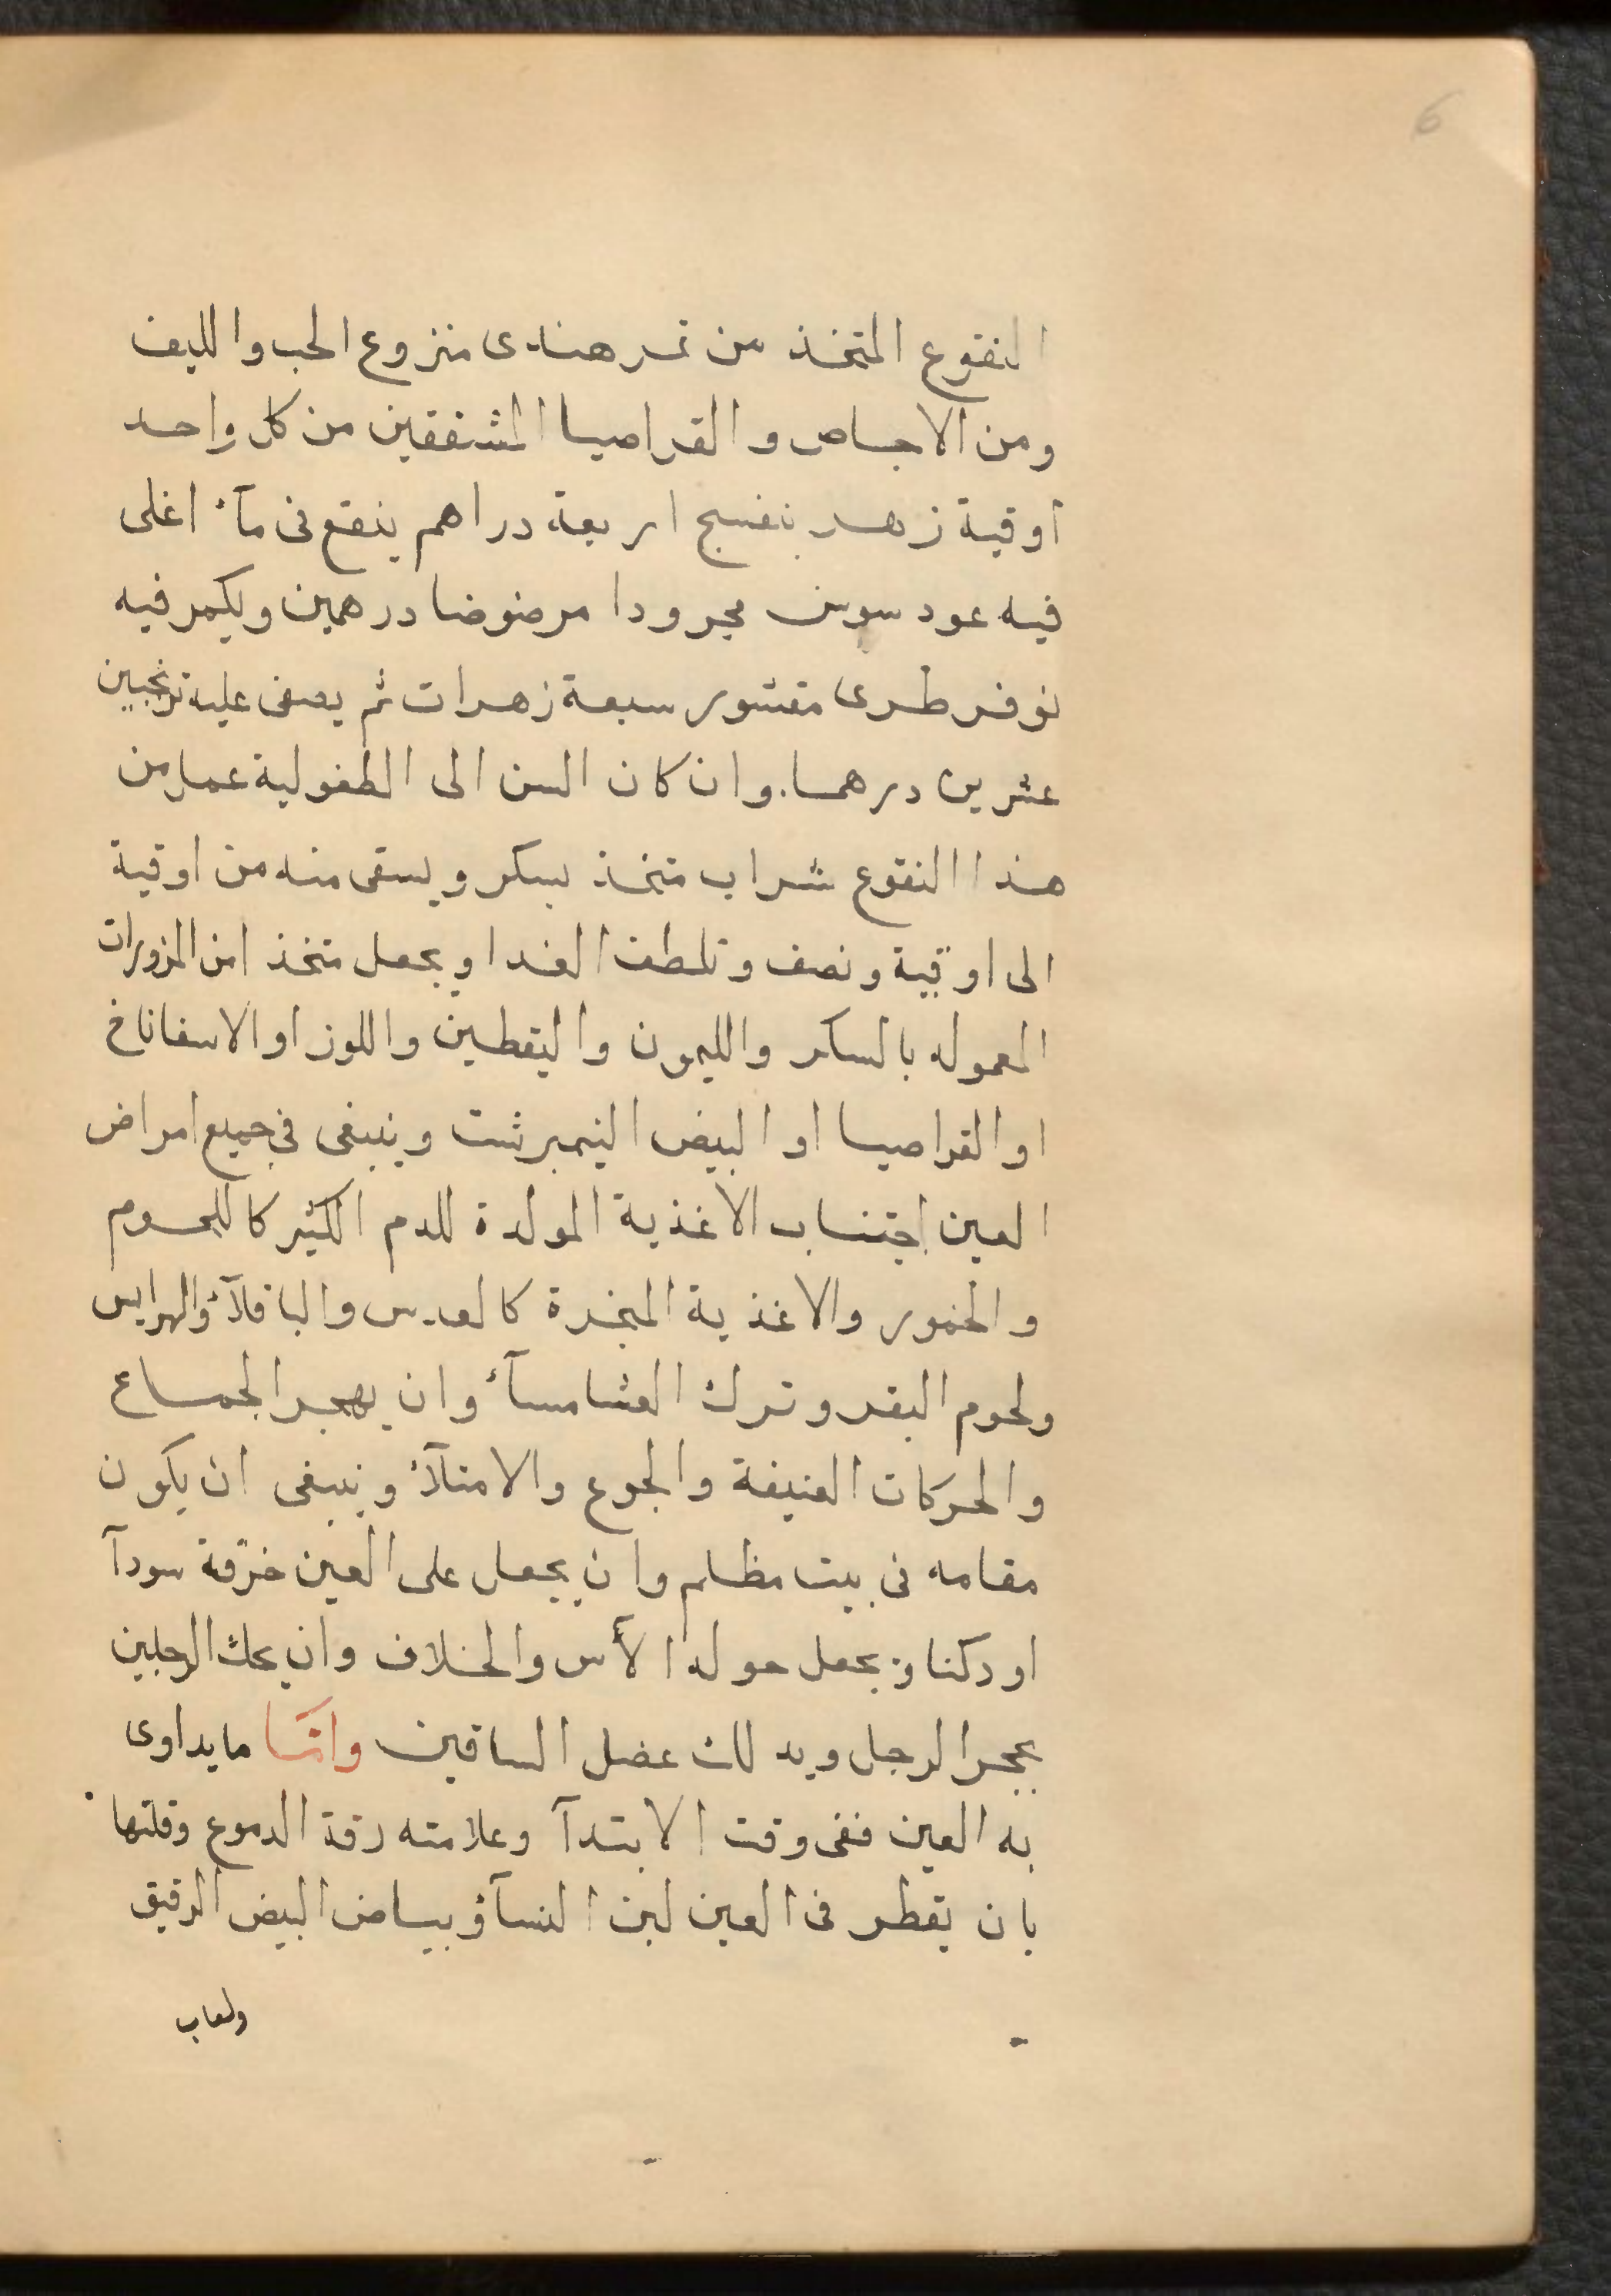 6
النقوع المتخذ من تمر هندى منزوع الحب والليف
ومن الاجاص والقراصيا المشققين من كل واحد
اوقية زهر بنفسج اربعة دراهم ينقع فى مآء اغلى
فيه عود سوس مجرودا مرضوضا درهمين ويكمر فيه
نوفر طرى مقشور سبعة زهرات ثم يصفى عليه ترنجبين
عشرين درهما. وان كان السن الى الطفولية عمل من
هذا النقوع شراب متخذ بسكر ويسقى منه من اوقية
الى اوقية ونصف وتلطف الغدا ويجعل متخذ امن المزورات
المعموله بالسكر والليمون واليقطين واللوز او الاسفاناخ
او القراصيا او البيض النيمبرشت وينبغى فى جميع امراض
العين اجتناب الاغذية المولدة للدم الكثير كاللحوم
والخمور والاغذية المبخرة كالعدس والباقلآء والهرايس
ولحوم البقر وترك العشا مسآء وان يهجر الجماع
والحركات العنيفة والجوع والامتلآء وينبغى ان يكون
مقامه فى بيت مظلم وان يجعل على العين خرقة سودآ
او دكنا ويجعل حوله الأس والخلاف وان يحك الرجلين
بحجر الرجل ويدلك عضل الساقين وامّا ما يداوى
به العين ففى وقت الابتدآ وعلامته رقة الدموع وقلتها
بان يقطر فى العين لبن النسآ وبياض البيض الرقيق
ولعاب